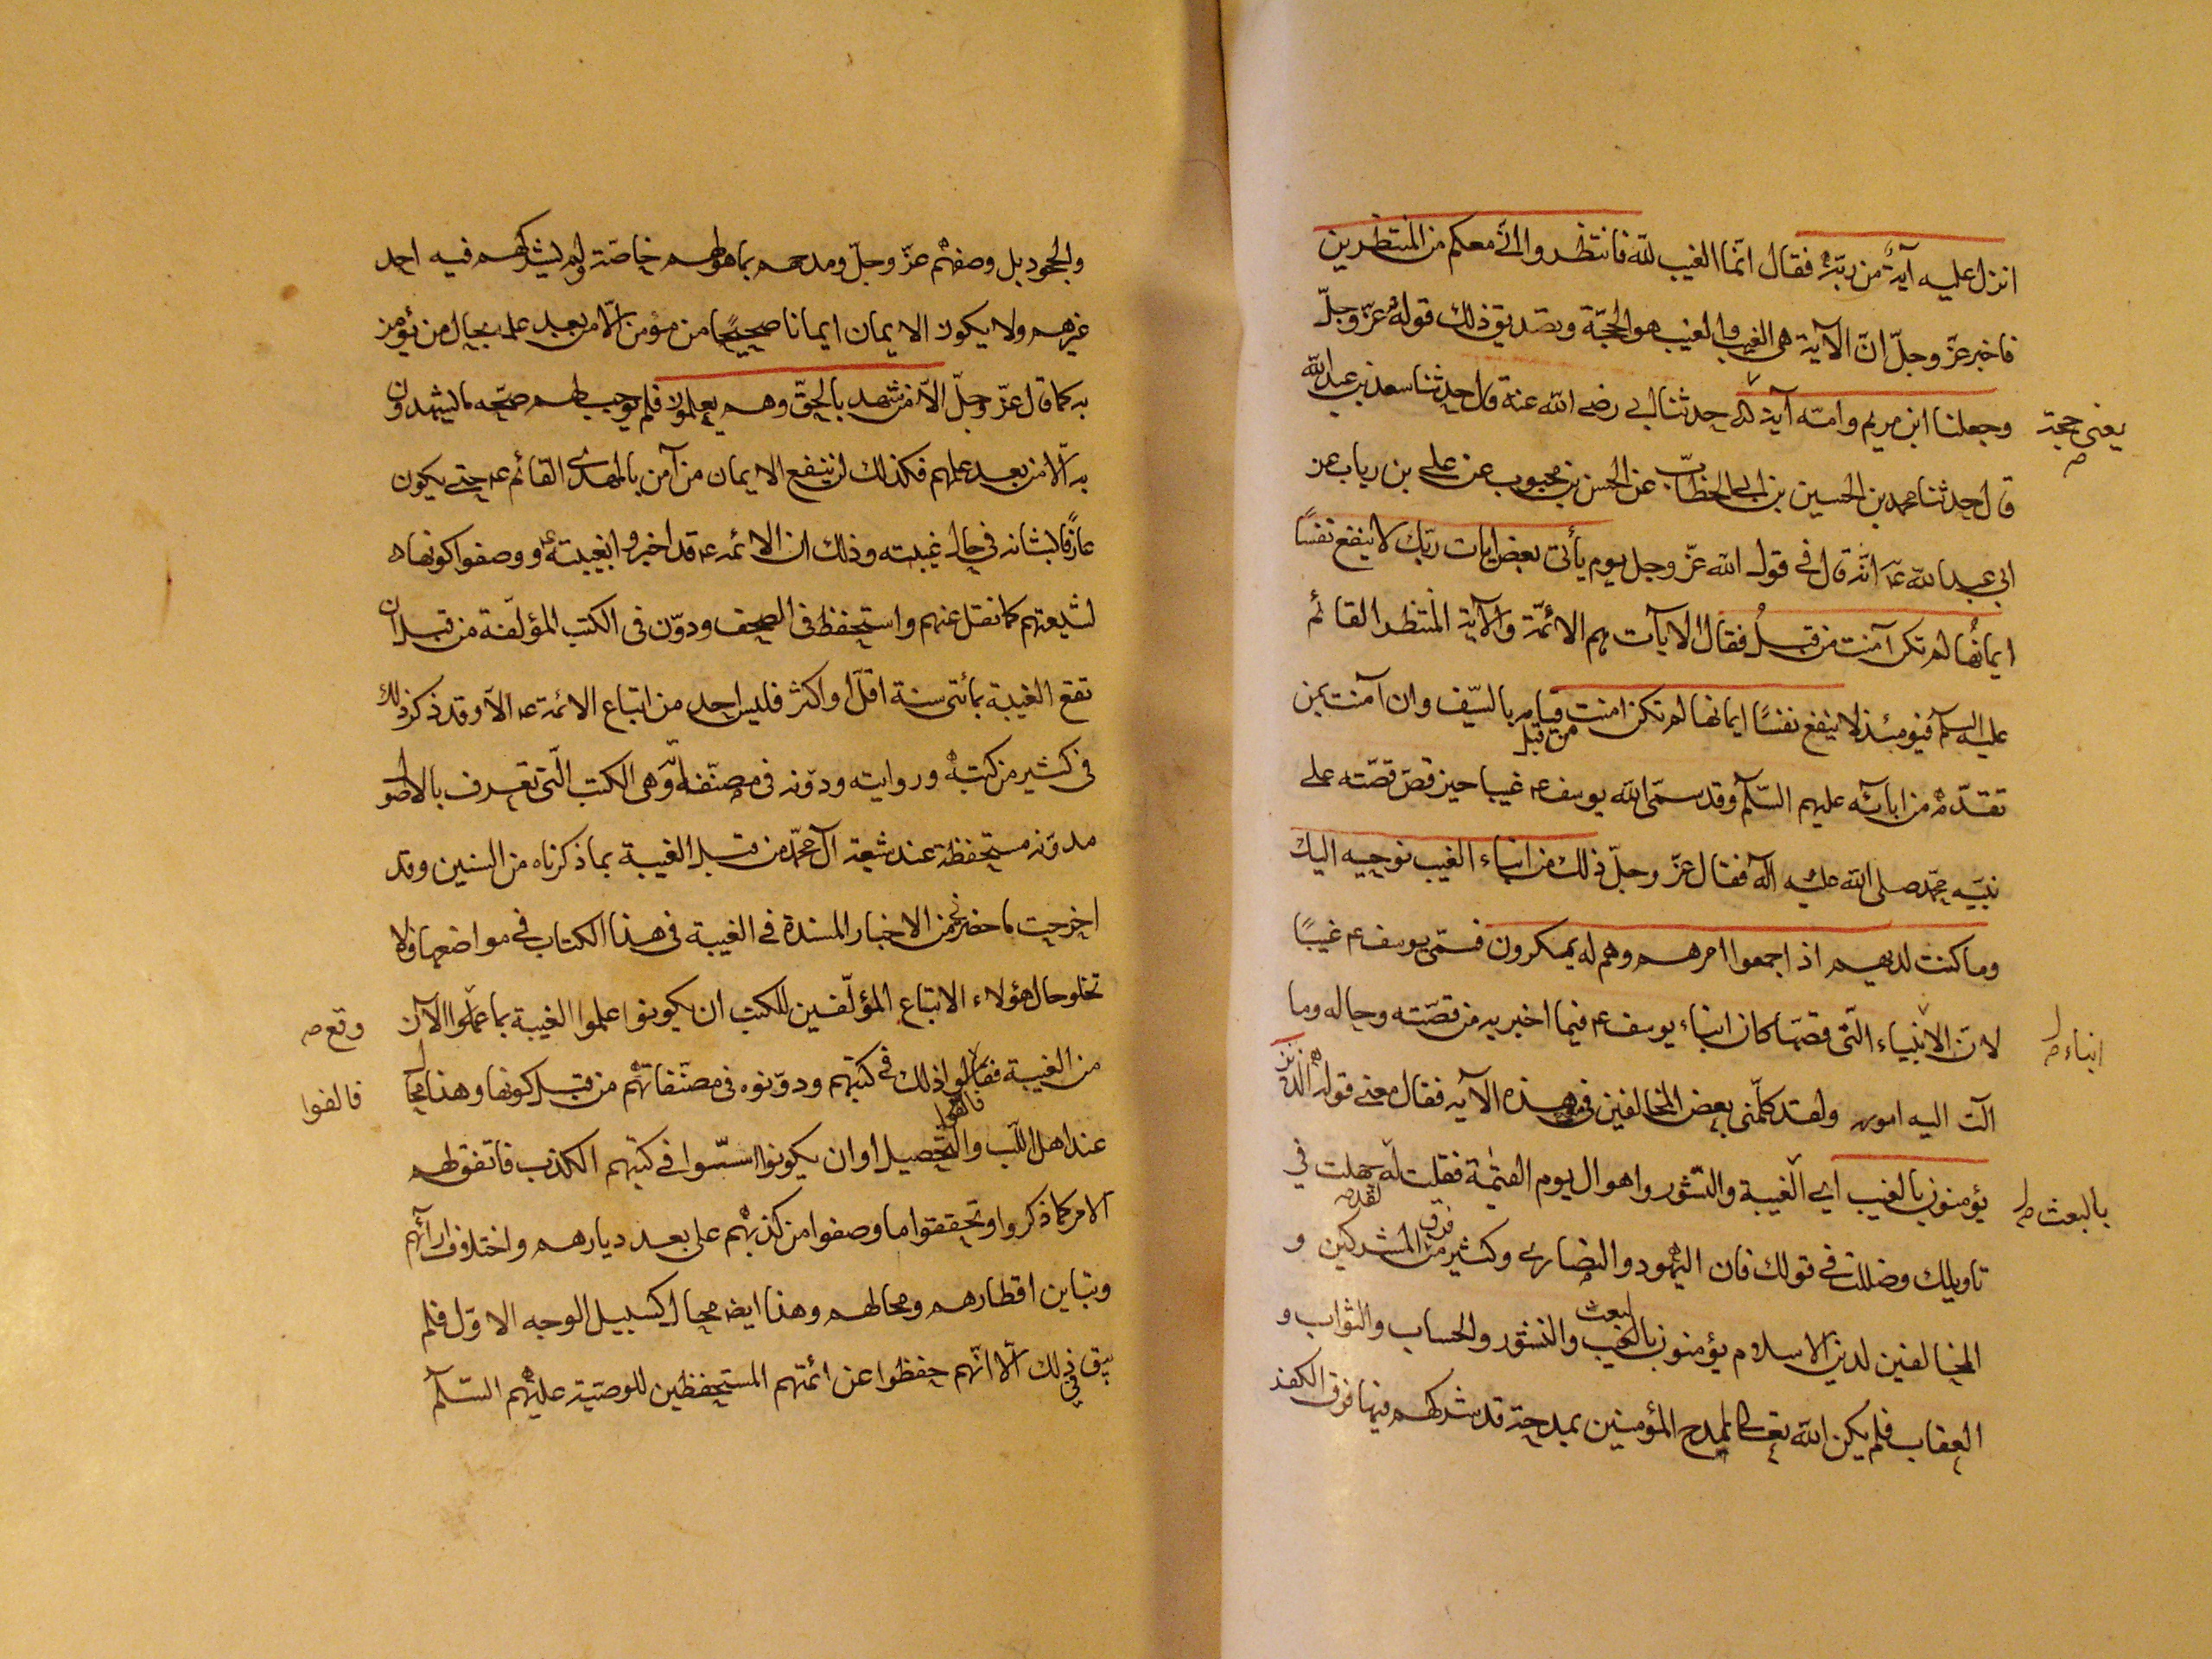 انزل عليه آية من ربّه فقال انّما الغيب للّه فانتظروا انّي معكم من المنتظرين
فاخبر عزّ وجلّ انّ الآية هى الغيب والغيب هو الحجّة وتصديق ذلك قوله عزّ وجلّ
وجعلنا ابن مريم وامّه آية حدثنا ابي رضي الله عنه قال حدثنا سعد بن عبد اللّه
يعنى حجة
قال حدثنا محمد بن الحسين بن ابي الخطاب عن الحسن بن محبوب عن على بن رياب عن
ابى عبد اللّه ع انّه قال فى قول الله عزّ وجل يوم يأتى بعض ايات ربّك لا ينفع نفسًا
ايمانُها لم تكن آمنت من قبلُ فقال الآيات هم الائمّة والآية المنتظر القائم
عليه السلم فيومئذ لا ينفع نفسًا ايمانها لم تكن امنت من قبل قيامه بالسّيف وان آمنت بمن
تقدّمه من ابائه عليهم السّلم وقد سمّى اللّه يوسف ع غيبا حين قصّ قصّته على
نبيّه محمّد صلى الله عليه وآله فقال عزّ وجلّ ذلك من انباء الغيب نوحيه اليك
وما كنت لديهم اذ اجمعوا امرهم وهم له يمكرون فسمّى يوسف ع غيبًا
لانّ الانبياء الّتى قصّها كان انباء يوسف ع فيما اخبر به من قصّته وحاله وما
انباء
الت اليه اموره ولقد كلّمنى بعض المخالفين فى هذه الآيه فقال معنى قوله الذين
يؤمنون بالغيب اى الغيبة والنّشور واهوال يوم القيمة فقلت له لقد جهلت في
بالبعث
تاويلك وضللت فى قولك فان اليهود والنصارى وكثير من فرق المشركين و
المخالفين لدين الاسلام يؤمنون بالبعث والنشور والحساب والثواب و
العقاب فلم يكن اللّه تعالى ليمدح المؤمنين بمدحة قد شركهم فيها فرق الكفر
والجحود بل وصفهم عزّ وجلّ ومدحهم بما هو لهم خاصّة لم يشركهم فيه احد
غيرهم ولا يكون الايمان ايمانا صحيحًا من مؤمن الّا من بعد علمه بحال من يؤمن
به كما قال عزّ وجلّ الّا من شهد بالحقّ وهم يعلمون فلم يوجب لهم صحّه ما يشهدون
به الّا من بعد علمهم فكذلك لن ينفع الايمان من آمن بالمهدى القائم ع حتى يكون
عارفًا بشانه فى حال غيبته وذلك ان الائمه ع قد اخبروا بغيبته ع ووصفوا كونها
لشيعتهم كما نقل عنهم واستحفظ فى الصحف ودوّن فى الكتب المؤلّفة من قبل ان
تقع الغيبة بمائتى سنة اقلّ او اكثر فليس احد من اتباع الائمة ع الّا وقد ذكر ذلك
فى كثير من كتبه ورواياته ودوّنه فى مصنّفاته وهى الكتب الّتى تعرف بالاصول
مدوّنه مستحفظة عند شيعة آل محمّد من قبل الغيبة بما ذكرناه من السنين وقد
اخرجت ما حضرنى من الاخبار المسندة فى الغيبة فى هذا الكتاب فى مواضعها فلا
تخلو حال هؤلاء الاتباع المؤلّفين للكتب ان يكونوا علموا الغيبة بما علموا الآن
وقع
من الغيبة فقالوا ذلك فى كتبهم ودوّنوه فى مصنّفاتهم من قبل كونها وهذا محال
فالفوا
عند اهل اللّب والتحصيل او ان يكونوا اسّسوا فى كتبهم الكذب فاتفق لهم
الامر كما ذكروا وتحققوا ما وصفوا من كذبهم على بعد ديارهم واختلاف ارائهم
وتباين اقطارهم ومحالهم وهذا ايضا محال كسبيل الوجه الاوّل فلم
يبق فى ذلك الّا انّهم حفظوا عن ائمتهم المستحفظين للوصيّة عليهم السّلم